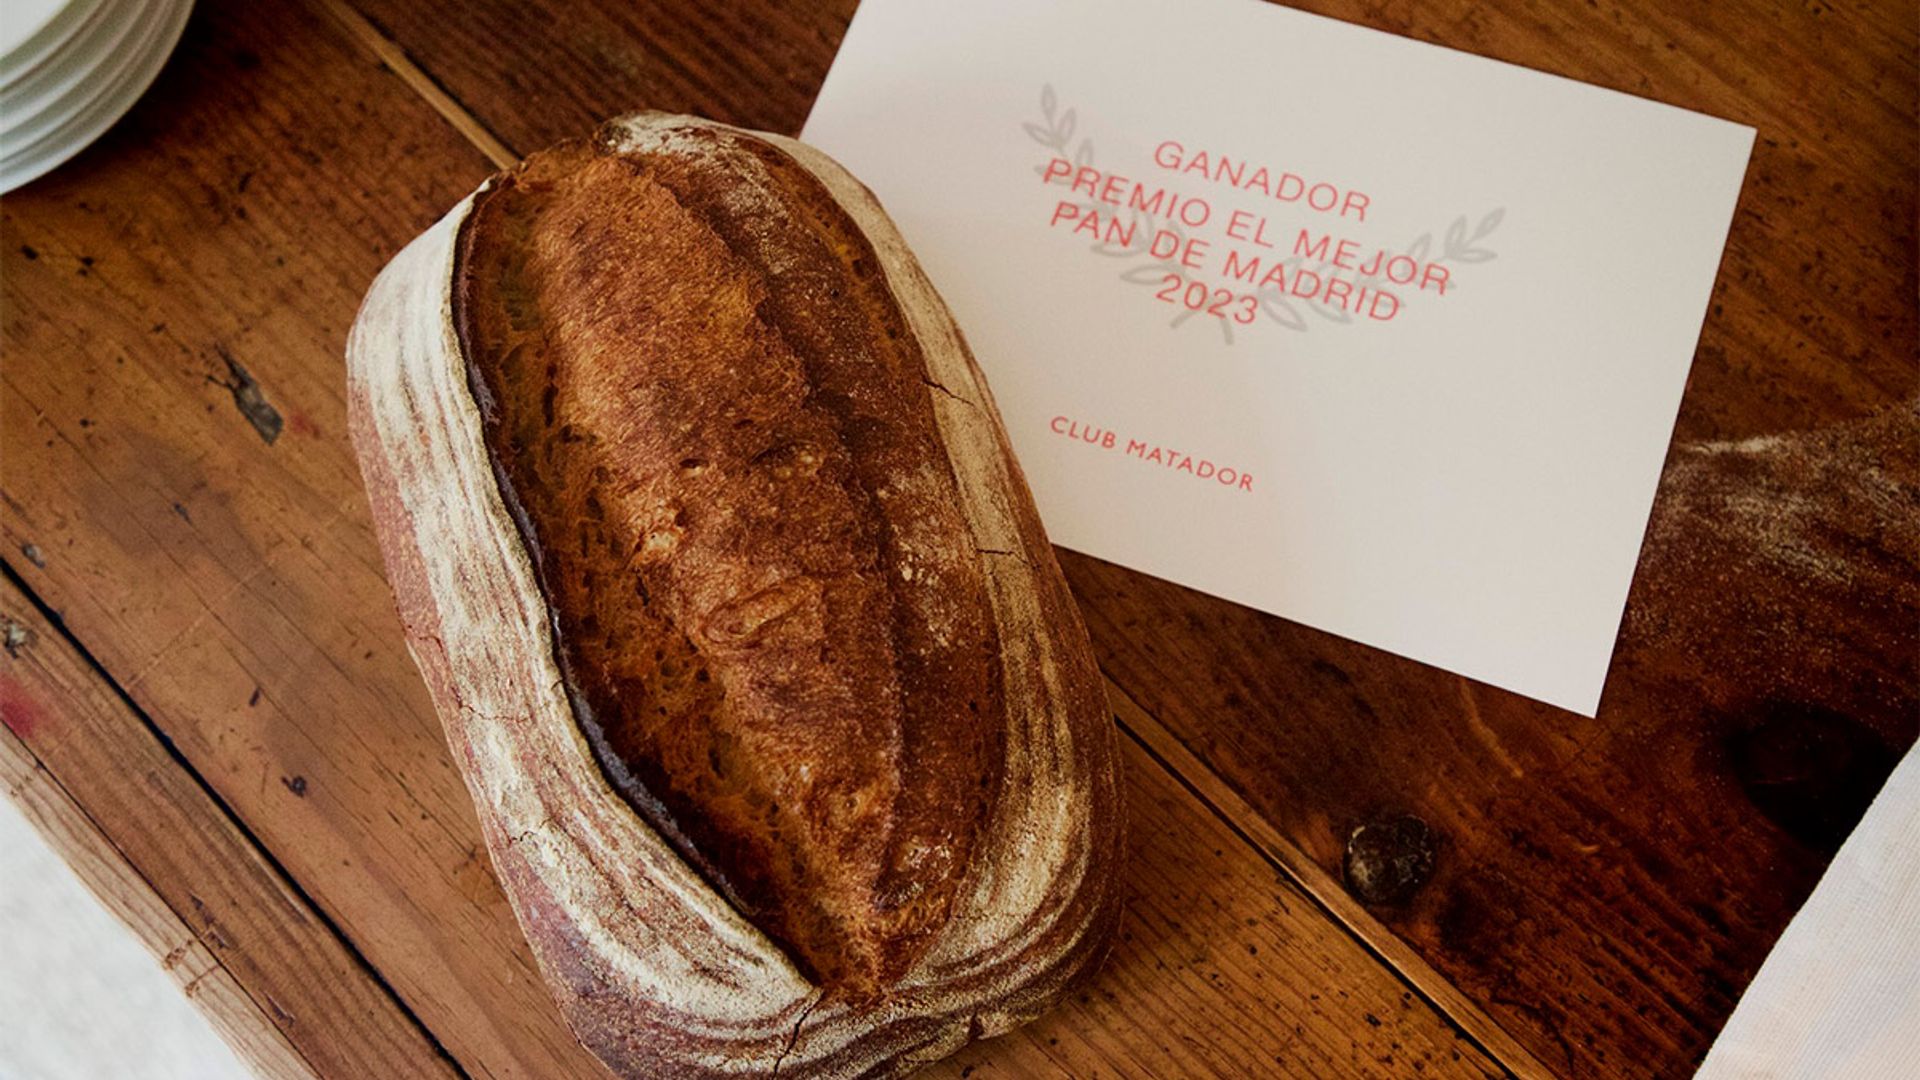 GANADOR
PREMIO EL MEJOR
PAN DE MADRID
2023
CLUB MATADOR